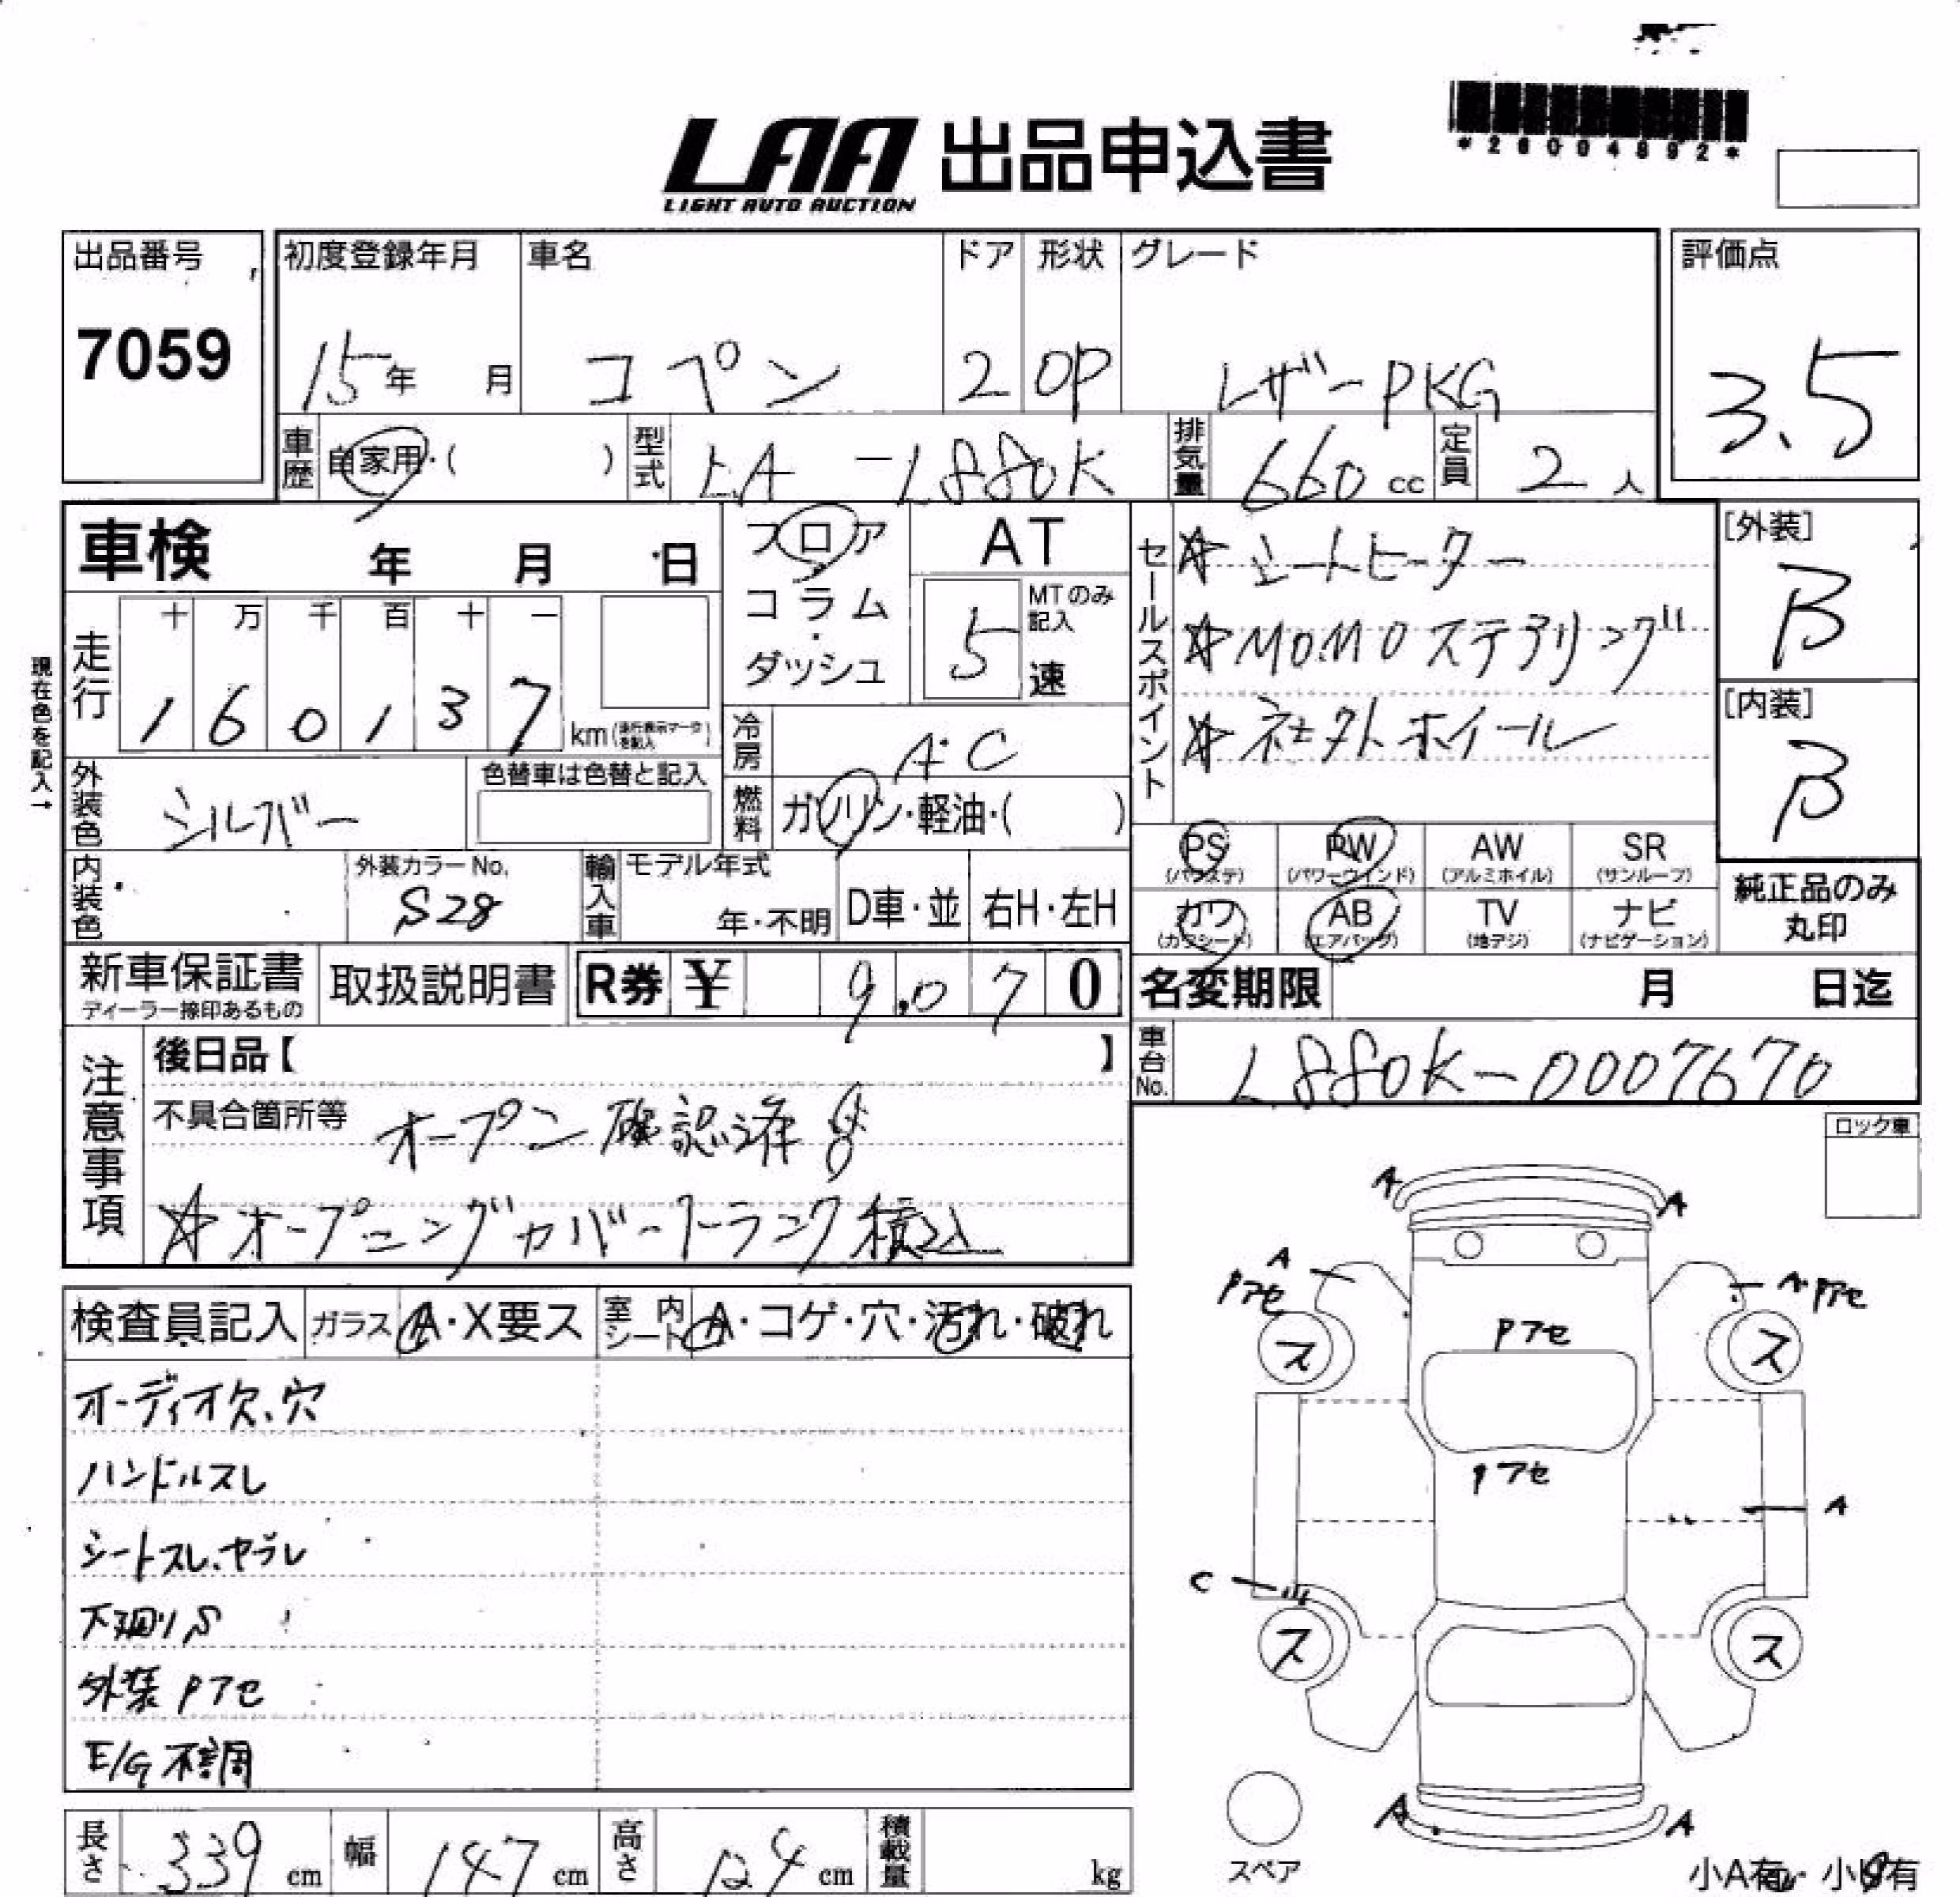 *26004892*
LAA 出品申込書
LIGHT AUTO AUCTION
出品番号
7059
初度登録年月
15年 月
車名
コペン
ドア
2
形状
OP
グレード
レザーPKG
評価点
3.5
車歴
自家用・( )
型式
LA-L880K
排気量
660 cc
定員
2 人
車検 年 月 日
現在色を記入→
走行
十 万 千 百 十 一
1 6 0 1 3 7 km
フロア
コラム
・
ダッシュ
AT
MTのみ記入
5 速
冷房
A・C
燃料
ガソリン・軽油・( )
外装色
シルバー
色替車は色替と記入
内装色
外装カラーNo.
S28
輸入車
モデル年式
年・不明
D車・並
右H・左H
セールスポイント
☆シートヒーター
☆MOMOステアリング
☆社外ホイール
[外装]
B
[内装]
B
PS
(パワステ)
PW
(パワーウインド)
AW
(アルミホイル)
SR
(サンルーフ)
カワ
(カワシート)
AB
(エアバッグ)
TV
(地デジ)
ナビ
(ナビゲーション)
純正品のみ
丸印
新車保証書
ディーラー捺印あるもの
取扱説明書
R券 ¥ 9,070
名変期限 月 日迄
車台No.
L880K-0007670
注意事項
後日品【 】
不具合箇所等 オープン確認済
☆オープニングカバートランク積込
ロック車
検査員記入
ガラス A・X要ス
室内シート A・コゲ・穴・汚れ・破れ
オーディオ欠、穴
ハンドルスレ
シートスレ、ヤブレ
下廻りS
外装Pアセ
E/G不調
A
A
A
Pアセ
A Pアセ
Pアセ
ス
ス
Pアセ
A
C
ス
ス
A
A
スペア
小A有・小 有
長さ 339 cm
幅 147 cm
高さ 124 cm
積載量 kg